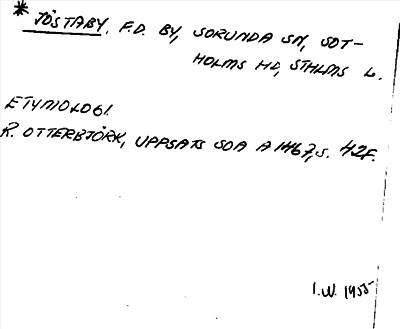 * JÖSTABY, F.D. BY, SORUNDA SN, SOT-
HOLMS HD, STHLMS L.
ETYMOLOGI.
R. OTTERBJÖRK, UPPSATS SOA A 1467, S. 42F.
I.W. 1955